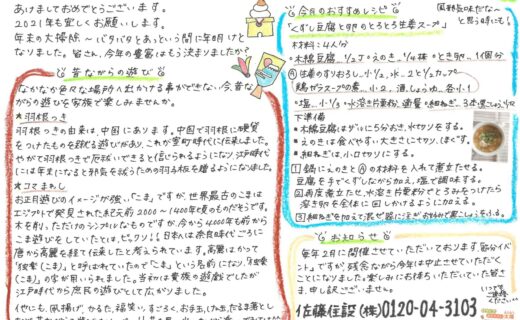 あけましておめでとうございます。
2021年も宜しくお願いします。
年末の大掃除〜バタバタとあっという間に年明けと
なりました。皆さん、今年の豊富はもう決りましたか？
昔ながらの遊び
なかなか色々な場所へ出かける事ができない今、昔な
がらの遊びを家族で楽しみませんか。
★羽根つき
羽根つきの由来は、中国にあります。中国で羽根に硬貨
をつけたものを蹴る遊びがあり、これが室町時代に伝来しました。
やがて羽根つきで厄祓いできると信じられるようになり江戸時代
には年末になると邪気を祓うための羽子板を贈るようになりました。
★コマまわし
お正月遊びのイメージが強い「こま」ですが、世界最古のこまは
エジプトで発見された紀元前2000〜1400年頃のものだそうです。
木を削っただけのシンプルなものですが、今から4000年も前から
こま遊びをしていたとは、ビックリ!!日本へは奈良時代ごろに
唐から高麗を経て伝来したと考えられています。高麗はかつて
「独楽(こま)」と呼ばれていたので「こま」という名前になり、「独楽
(こま)」の字が用いられました。当初は貴族の遊戯でしたが
江戸時代から庶民の遊びとして広がりました。
他にも、凧揚げ、かるた、福笑い、すごろく、お手玉、けん玉、だるま落とし
今月のおすすめレシピ
「くずし豆腐と卵のとろとろ生姜スープ」
と思う時にも!
材料：4人分
・木綿豆腐…1/2丁・えのき…1/4株・とき卵…1個分
Ⓐ 生姜のすりおろし…小1/2、水…2と1/2カップ
鶏ガラスープの素…小2、酒、しょうゆ…各小1
下準備
・木綿豆腐はザルに5分おき、水切りをする。
・えのきは食べやすい大きさに切り、ほぐす。
・細ねぎは、小口切りにする。
1 鍋にえのきとⒶの材料を入れて煮立たせる。
豆腐を手でくずしながら加え、塩で調味する。
2 再度煮立たせ、水溶き片栗粉でとろみをつけたら
溶き卵を全体に回しかけるように加える。
3 細ねぎを加えて混ぜ器に注ぎお好みで黒こしょうをふる。
お知らせ
毎年2月に開催させていただいております「節分イベ
ント」ですが、残念ながら今年は中止させていただく
ことになりました。楽しみにお待ちいただいていた皆さ
ま、申し訳ございません。
佐藤住設(株)0120-04-3103